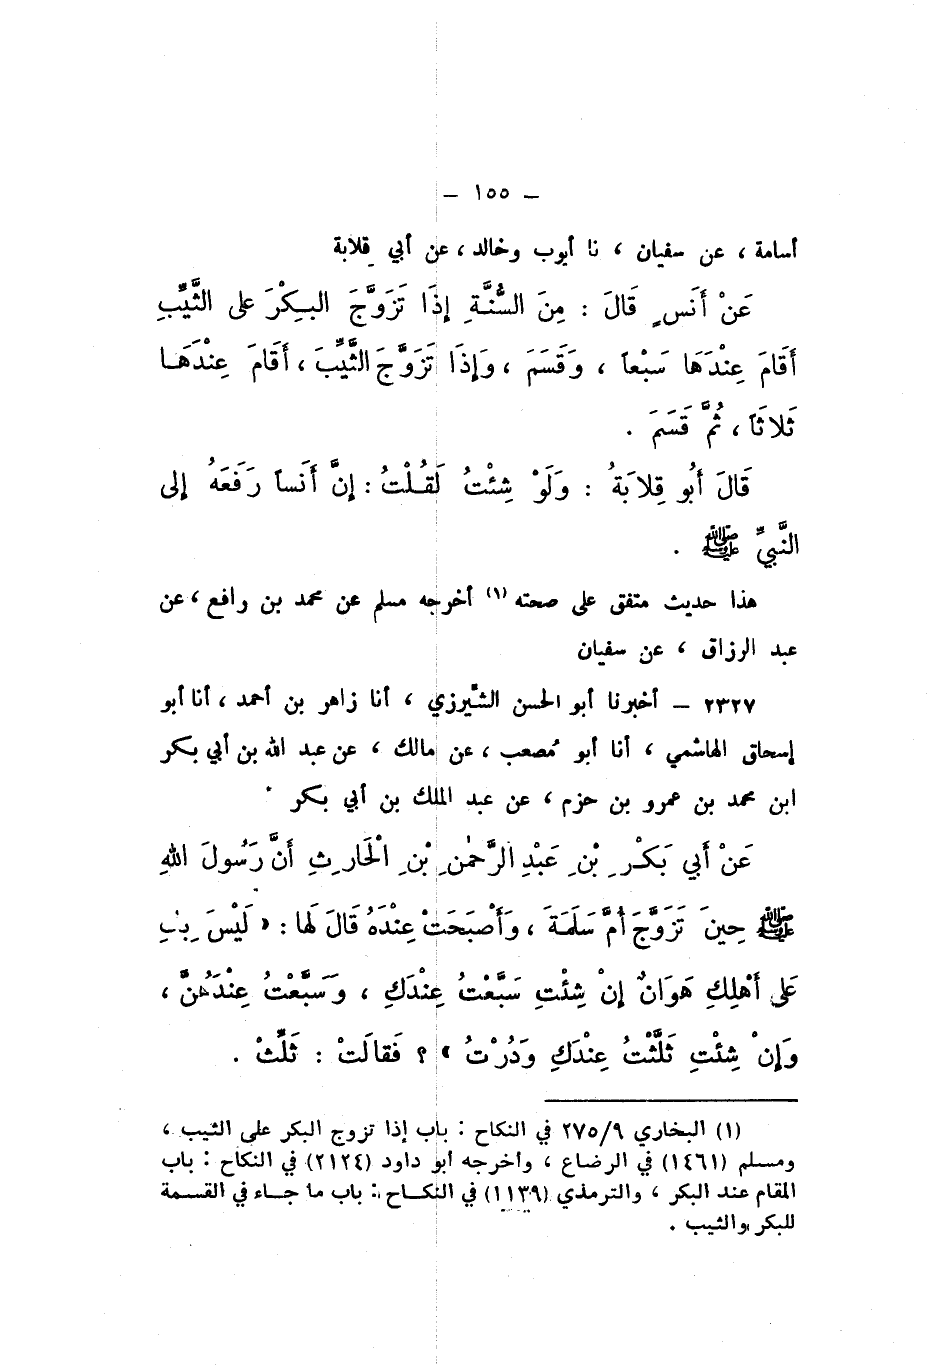 – ١٥٥ –
أسامة ، عن سفيان ، نا أيوب وخالد ، عن أبي قلابة
عَنْ أَنَسٍ قَالَ : مِنَ السُّنَّةِ إِذَا تَزَوَّجَ البِكْرَ على الثَّيِّبِ
أَقَامَ عِنْدَهَا سَبْعاً ، وَقَسَمَ ، وَإِذَا تَزَوَّجَ الثَّيِّبَ ، أَقَامَ عِنْدَهَا
ثَلاثَاً ، ثُمَّ قَسَمَ .
قَالَ أَبُو قِلابَةُ : وَلَوْ شِئْتُ لَقُلْتُ : إِنَّ أَنَساً رَفَعَهُ إلى
النَّبيِّ ﷺ .
هذا حديث متفق على صحته (١) أخرجه مسلم عن محمد بن رافع ، عن
عبد الرزاق ، عن سفيان
٢٣٢٧ – أخبرنا أبو الحسن الشَّيرزي ، أنا زاهر بن أحمد ، أنا أبو
إسحاق الهاشمي ، أنا أبو مُصعب ، عن مالك ، عن عبد الله بن أبي بكر
ابن محمد بن عمرو بن حزم ، عن عبد الملك بن أبي بكر .
عَنْ أَبي بَكْرِ بْنِ عَبْدِ الرَّحْمٰنِ بْنِ الْحَارِثِ أَنَّ رَسُولَ اللهِ
ﷺ حِينَ تَزَوَّجَ أُمَّ سَلَمَةَ ، وَأَصْبَحَتْ عِنْدَهُ قَالَ لَها : « لَيْسَ بِكِ
عَلى أَهْلِكِ هَوَانٌ إِنْ شِئْتِ سَبَّعْتُ عِنْدَكِ ، وَسَبَّعْتُ عِنْدَهُنَّ ،
وَإِنْ شِئْتِ ثَلَّثْتُ عِنْدَكِ وَدُرْتُ » ؟ فَقالَتْ : ثَلِّثْ .
(١) البخاري ٢٧٥/٩ في النكاح : باب إذا تزوج البكر على الثيب ،
ومسلم (١٤٦١) في الرضاع ، وأخرجه أبو داود (٢١٢٤) في النكاح : باب
المقام عند البكر ، والترمذي (١١٣٩) في النكاح : باب ما جاء في القسمة
للبكر والثيب .